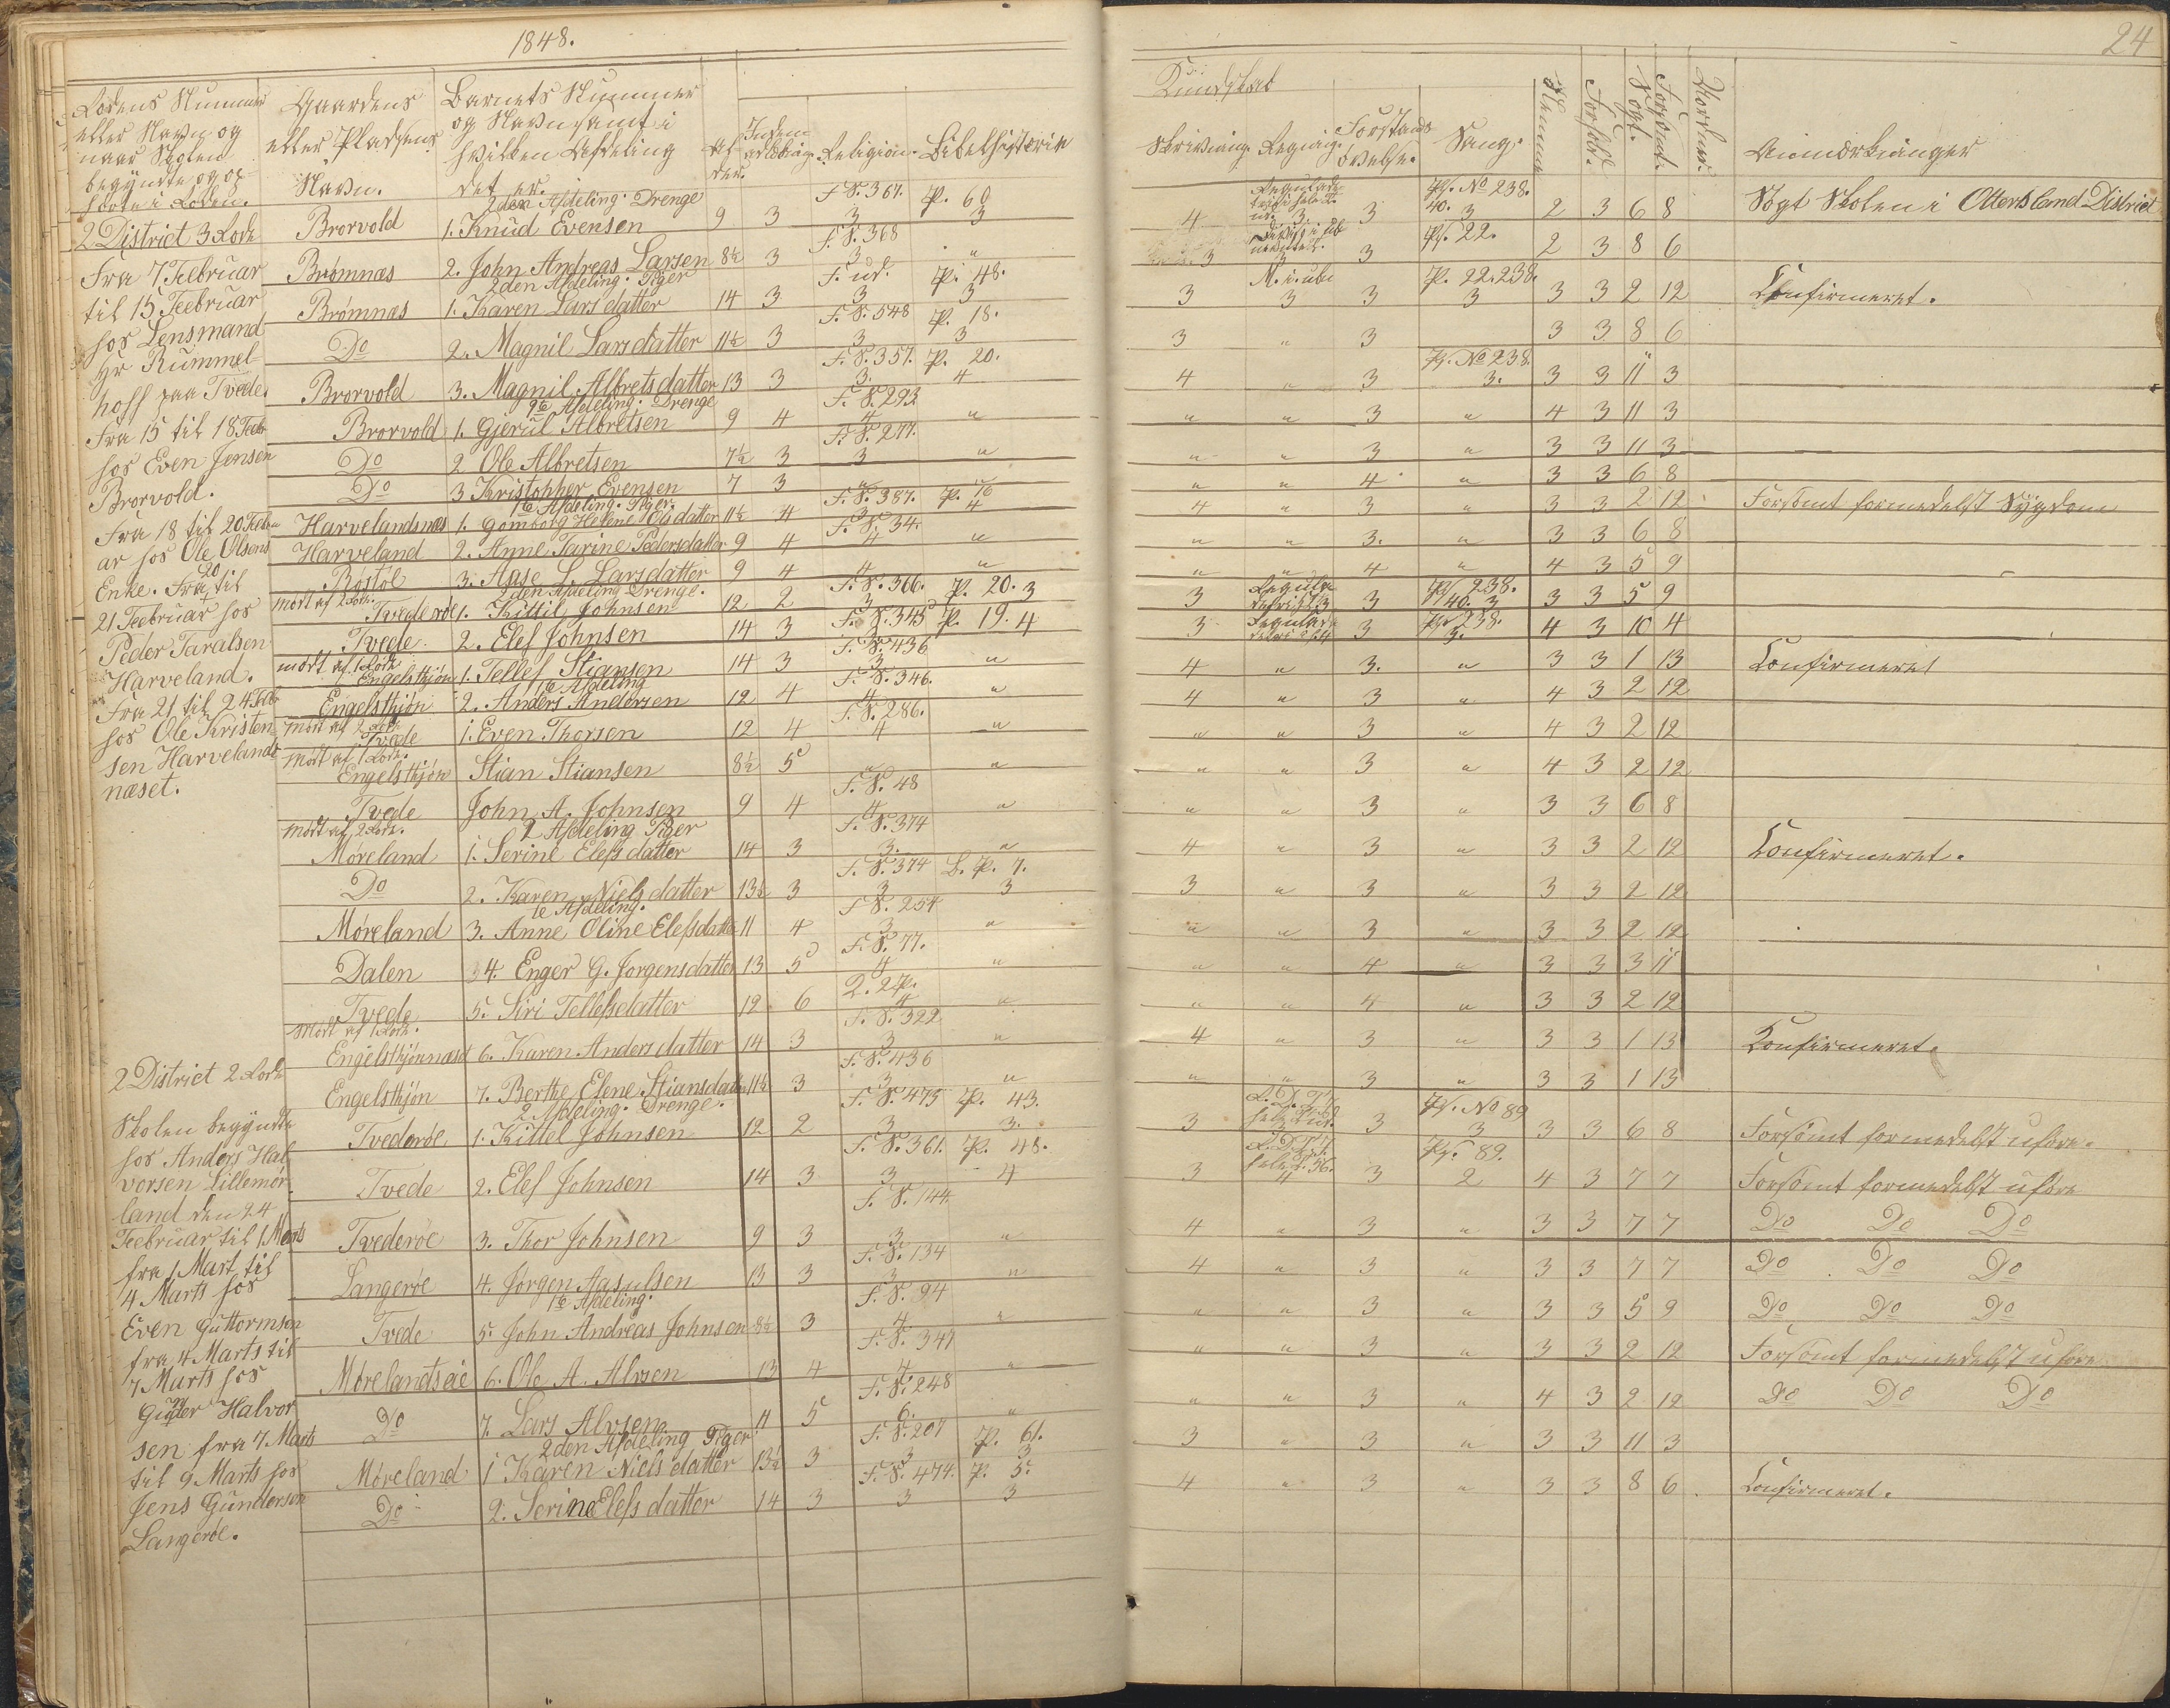 1848.
24
Rodens Nummer eller Navn og naar Skolen begyndte og ophörte i Roden.
Gaardens eller Pladsens Navn.
Barnets Nummer og Navn samt i hvilken Afdeling det er.
Alder.
Indenadlæsning.
Religion.
Bibelhistorie
Kundskab
Skrivning.
Regning.
Forstands övelse.
Sang.
Nemme
Forhold.
Sögt.
Forsömt.
Anmærkninger
2 District 3 Rode
Fra 7 Februar
til 15 Feebruar
hos Lensmand
Hr Rummel-
hoff paa Tvede.
Fra 15 til 18 Feebr
hos Even Jensen
Brorvold.
Fra 18 til 20 Febru
ar hos Ole Olsens
Enke. Fra 20 til
21 Feebruar hos
Peder Taralsen
Harveland.
Fra 21 til 24 Feb
hos Ole Kristen
sen Harvelands
næset.
2 District 2 Rode
Skolen begyndte
hos Anders Hal
vorsen Lillemör
land den 24
Feebruar til 1 Marts
fra 1 Mart til
4 Marts hos
Even Guttormsen
fra 4 Marts til
7 Marts hos
Halvor
sen fra 7 Marts
til 9 Marts hos
Jens Gundersen
Langeröe.
2den Afdeling. Drenge F.S. 367. P. 60 Ps. No 238.
Brorvold 1. Knud Evensen 9 3 3 3 4 3 3 40. 3 2 3 6 8 Sögt Skolen i Ottersland District
F.S. 368 Ps. 22.
Brömnæs 2. John Andreas Larsen 8½ 3 3 " 3 3 3 2 3 8 6
2den Afdeling. Piger F. ud. P. 48. M. i. ube P. 22. 238.
Brömnæs 1. Karen Larsdatter 14 3 3 3 3 3 3 3 3 3 2 12 Confirmeret.
F.S. 548 P. 18.
Do 2. Magnil Larsdatter 11½ 3 3 3 3 " 3 3 3 8 6
F.S. 357. P. 20. Ps. No 238.
Brorvold 3. Magnil Albretsdatter 13 3 3. 4 4 " 3 3. 3 3 11 3
1te Afdeling. Drenge F.S. 293
Brorvold 1. Gjerul Albretsen 9 4 4 " " " 3 " 4 3 11 3
F.S. 277.
Do 2 Ole Albretsen 7½ 3 3 " " " 3 " 3 3 11 3
Do 3 Kristopher Evensen 7 3 " " " " 4 " 3 3 6 8
1te Afdeling. Piger. F.S. 387. P. 16
Harvelandsnæs 1. Gomborg Helene Olsdatter 11½ 4 3 4 4 " 3 " 3 3 2 12 Forsömt formedelst Sygdom
F.S. 34.
Harveland 2. Anne Tarine Pedersdatter 9 4 4 " " " 3. " 3 3 6 8
Böstöl 3. Aase L. Larsdatter 9 4 4 " " " 4 " 4 3 5 9
mödt af 2 Rode. 2den Afdeling Drenge. F.S. 366. P. 20. 3 Ps 238.
Tvederöe 1. Kittil Johnsen 12 2 3 3 3 3 40. 3 3 3 5 9
F.S. 345 P. 19. 4 Ps 238.
Tvede 2. Elef Johnsen 14 3 3 3 4 3 3. 4 3 10 4
mödt af 1 Rode F.S. 436
Engelsthjön 1. Tellef Stiansen 14 3 3 " 4 " 3. " 3 3 1 13 Confirmeret
1te Afdeling F.S. 346.
Engelsthjön 2. Anders Andersen 12 4 4 " 4 " 3 " 4 3 2 12
mödt af 2 Rode F.S. 286.
Tvede 1. Even Thorsen 12 4 4 " " " 3 " 4 3 2 12
mödt af 1 Rode.
Engelsthjön Stian Stiansen 8½ 5 " " " " 3 " 4 3 2 12
F.S. 48
Tvede John A. Johnsen 9 4 4 " " " 3 " 3 3 6 8
mödt af 2 Rode. 2 Afdeling Piger F.S. 374
Möreland 1. Serine Elefsdatter 14 3 3. " 4 " 3 " 3 3 2 12 Confirmeret.
F.S. 374 B. P. 7.
Do 2. Karen Nielsdatter 13½ 3 3 3 3 " 3 " 3 3 2 12
1te Afdeling. F.S. 254
Möreland 3. Anne Oline Elefsdatter 11 4 3 " " " 3 " 3 3 2 12
F.S. 77.
Dalen 4. Enger G. Jorgensdatter 13 5 4 " " " 4 " 3 3 3 11
2. 2 P.
Tvede 5. Siri Tellefsdatter 12 6 4 " " " 4 " 3 3 2 12
Mödt af 1 Rode. F.S. 322
Engelsthjönnæset 6. Karen Andersdatter 14 3 3 " 4 " 3 " 3 3 1 13 Confirmeret.
F.S. 436
Engelsthjön 7. Berthe Elene Stiansdatter 11½ 3 3 " " " 3 " 3 3 1 13
2 Afdeling. Drenge. F.S. 475 P. 43. Ps. No 89
Tvederöe 1. Kittel Johnsen 12 2 3 3. 3 3 3 3 3 3 6 8 Forsömt formedelst uföre.
F.S. 361. P. 48. Ps. 89.
Tvede 2. Elef Johnsen 14 3 3 4 3 4 3 2 4 3 7 7 Forsömt formedelst uföre
F.S. 144
Tvederöe 3. Thor Johnsen 9 3 3 " 4 " 3 " 3 3 7 7 Do Do Do
F.S. 134
Langeröe 4. Jörgen Aasulsen 13 3 3 " 4 " 3 " 3 3 7 7 Do Do Do
1te Afdeling. F.S. 94
Tvede 5. John Andreas Johnsen 8½ 3 4 " " " 3 " 3 3 5 9 Do Do Do
F.S. 347
Mörelandseie 6. Ole A. Alvsen 13 4 4 " " " 3 " 3 3 2 12 Forsömt formedelst uföre
F.S. 248
Do 7. Lars Alvsen 11 5 6. " " " 3 " 4 3 2 12 Do Do Do
2den Afdeling Piger F.S. 207 P. 61.
Möreland 1 Karen Nielsdatter 13½ 3 3 3 3 " 3 " 3 3 11 3
F.S. 474. P. 5.
Do 2. Serine Elefsdatter 14 3 3 3 4 " 3 " 3 3 8 6 Confirmeret.